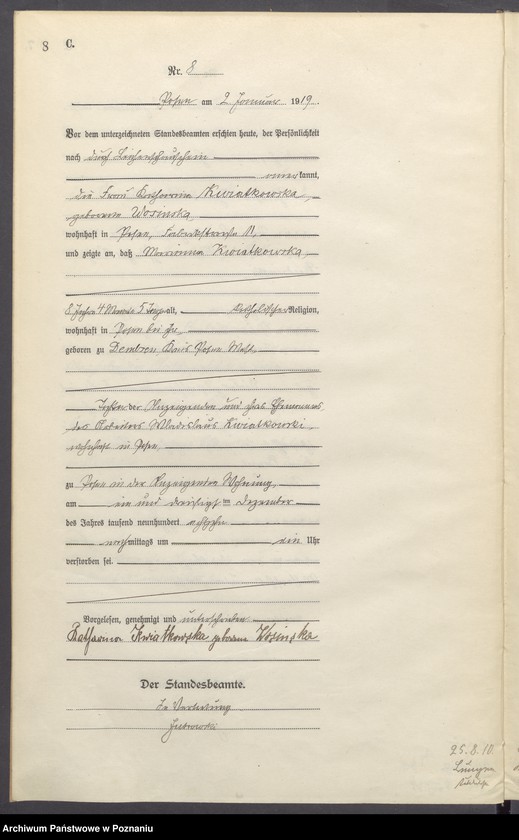 8 C.
Nr. 8
Posen am 2 Januar 1919.
Vor dem unterzeichneten Standesbeamten erschien heute, der Persönlichkeit
nach durch Leichenschauschein
kannt,
die Frau Katharina Kwiatkowska,
geborene Wosinska
wohnhaft in Posen, 11,
und zeigte an, daß Marianna Kwiatkowska
8 Jahre 4 Monate 5 Tage alt, katholischer Religion,
wohnhaft in Posen bei ihr
geboren zu Dembsen Kreis Posen West,
Tochter der Anzeigenden und ihres Ehemannes
des Arbeiters Wladislaus Kwiatkowski,
wohnhaft in Posen,
zu Posen in der Anzeigenden Wohnung,
am ein und dreißigsten Dezember
des Jahres tausend neunhundert achtzehn
nachmittags um ein Uhr
verstorben sei.
Vorgelesen, genehmigt und unterschrieben
Katharina Kwiatkowska geborene Wosinska
Der Standesbeamte.
In Vertretung
25.8.10.
Lungen
Archiwum Państwowe w Poznaniu